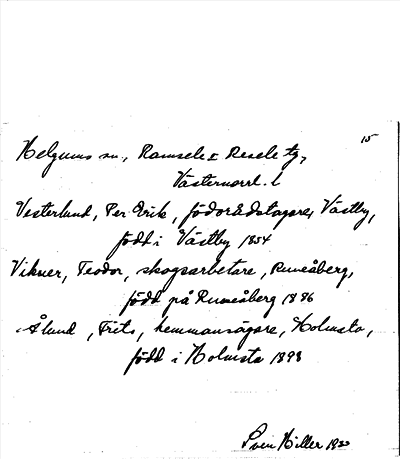 15
Helgums sn., Ramsele o Resele tg,
Västernorrl. l
Vesterlund, Per Erik, födorådstagare, Västby,
född i Västby 1854
Vikner, Teodor, skogsarbetare, Runeåberg,
född på Runeåberg 1886
Ålund, Frits, hemmansägare, Holmsta,
född i Holmsta 1898
Sven Hiller 1930